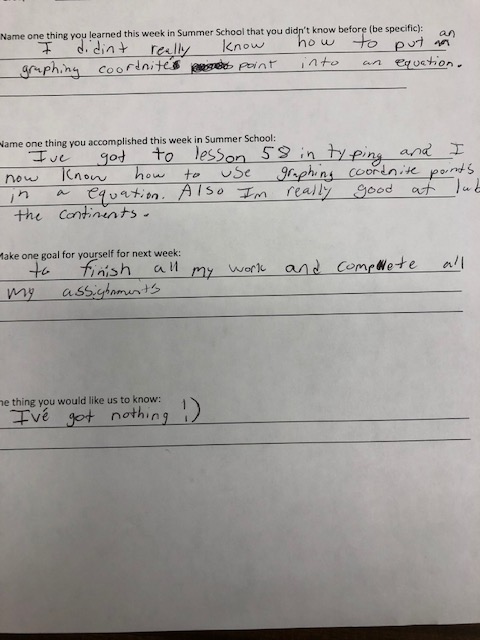 Name one thing you learned this week in Summer School that you didn't know before (be specific):
I didint really know how to put an
graphing coordnite's point into an equation.
Name one thing you accomplished this week in Summer School:
Ive got to lesson 58 in typing and I
now Know how to use graphing coordnite points
in a equation. Also Im really good at lab
the continents.
Make one goal for yourself for next week:
to finish all my work and complete all
my assighnments
ne thing you would like us to know:
Ivé got nothing !)